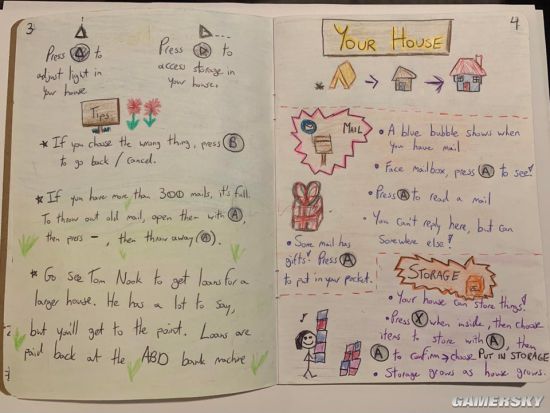 3
Press Δ to
adjust light in
your house
Press ▷ to
access storage in
your house.
Tips
* If you choose the wrong thing, press B
to go back / cancel.
* If you have more than 300 mails, it's full.
To throw out old mail, open them with A,
then press -, then throw away (A).
* Go see Tom Nook to get loans for a
larger house. He has a lot to say,
but you'll get to the point. Loans are
paid back at the ABD bank machine
4
YOUR HOUSE
MAIL
• A blue bubble shows when
you have mail
• Face mailbox, press A to see!
• Press A to read a mail
• You can't reply here, but can
somewhere else!
• Some mail has
gifts! Press A
to put in your pocket.
STORAGE
• Your house can store things!
• Press X when inside, then choose
items to store with A, then
A to confirm → choose PUT IN STORAGE
• Storage grows as house grows.
GAMERSKY